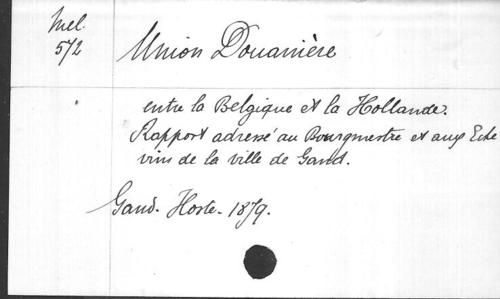 Mel.
572
Union Douanière
entre la Belgique et la Hollande.
Rapport adressé au Bourgmestre et aux Eche
vins de la ville de Gand.
Gand. Hoste. 1879.